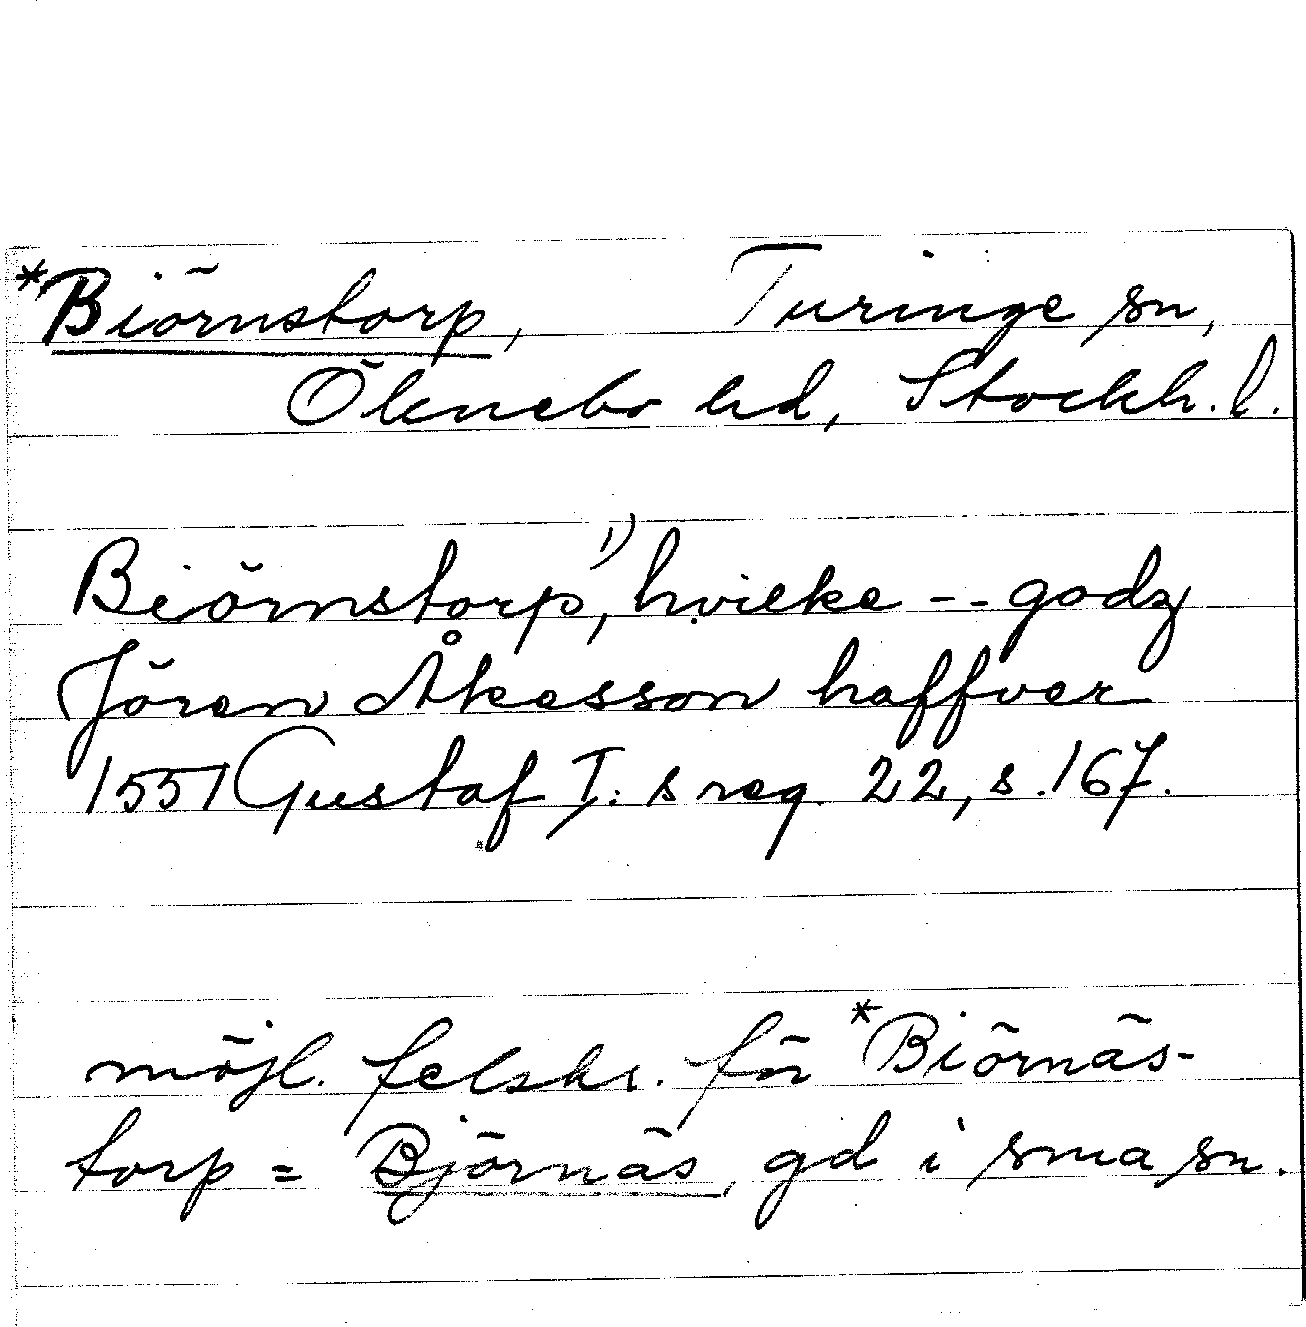 *Biörnstorp, Turinge sn,
Öknebo hd, Stockh. l.
Biörnstorp,¹⁾ hvilke -- godz
Jören Åkesson haffver
1551 Gustaf I:s reg. 22, s. 167.
möjl. felskr. för *Biörnäs-
torp = Björnäs, gd i sma sn.